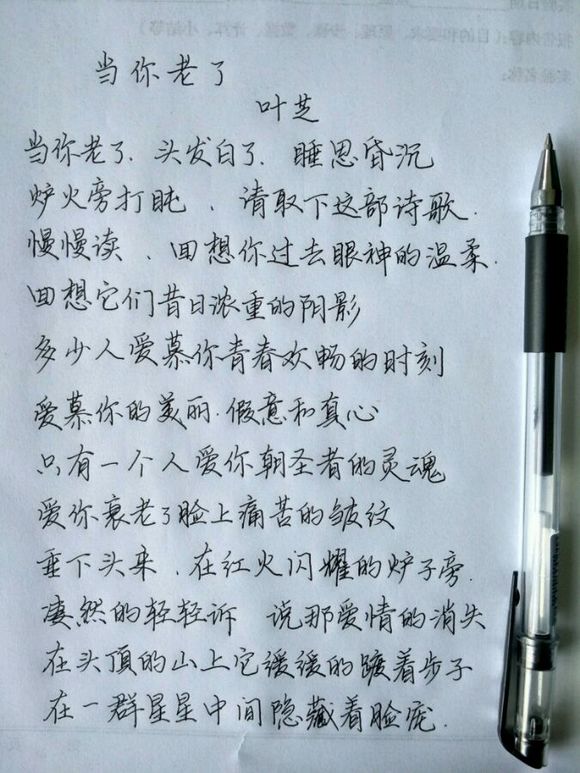 当你老了
叶芝
当你老了、头发白了、睡思昏沉
炉火旁打盹、请取下这部诗歌.
慢慢读、回想你过去眼神的温柔.
回想它们昔日浓重的阴影
多少人爱慕你青春欢畅的时刻
爱慕你的美丽.假意和真心
只有一个人爱你朝圣者的灵魂
爱你衰老了脸上痛苦的皱纹
垂下头来、在红火闪耀的炉子旁.
凄然的轻轻诉 说那爱情的消失
在头顶的山上它缓缓的踱着步子
在一群星星中间隐藏着脸庞.